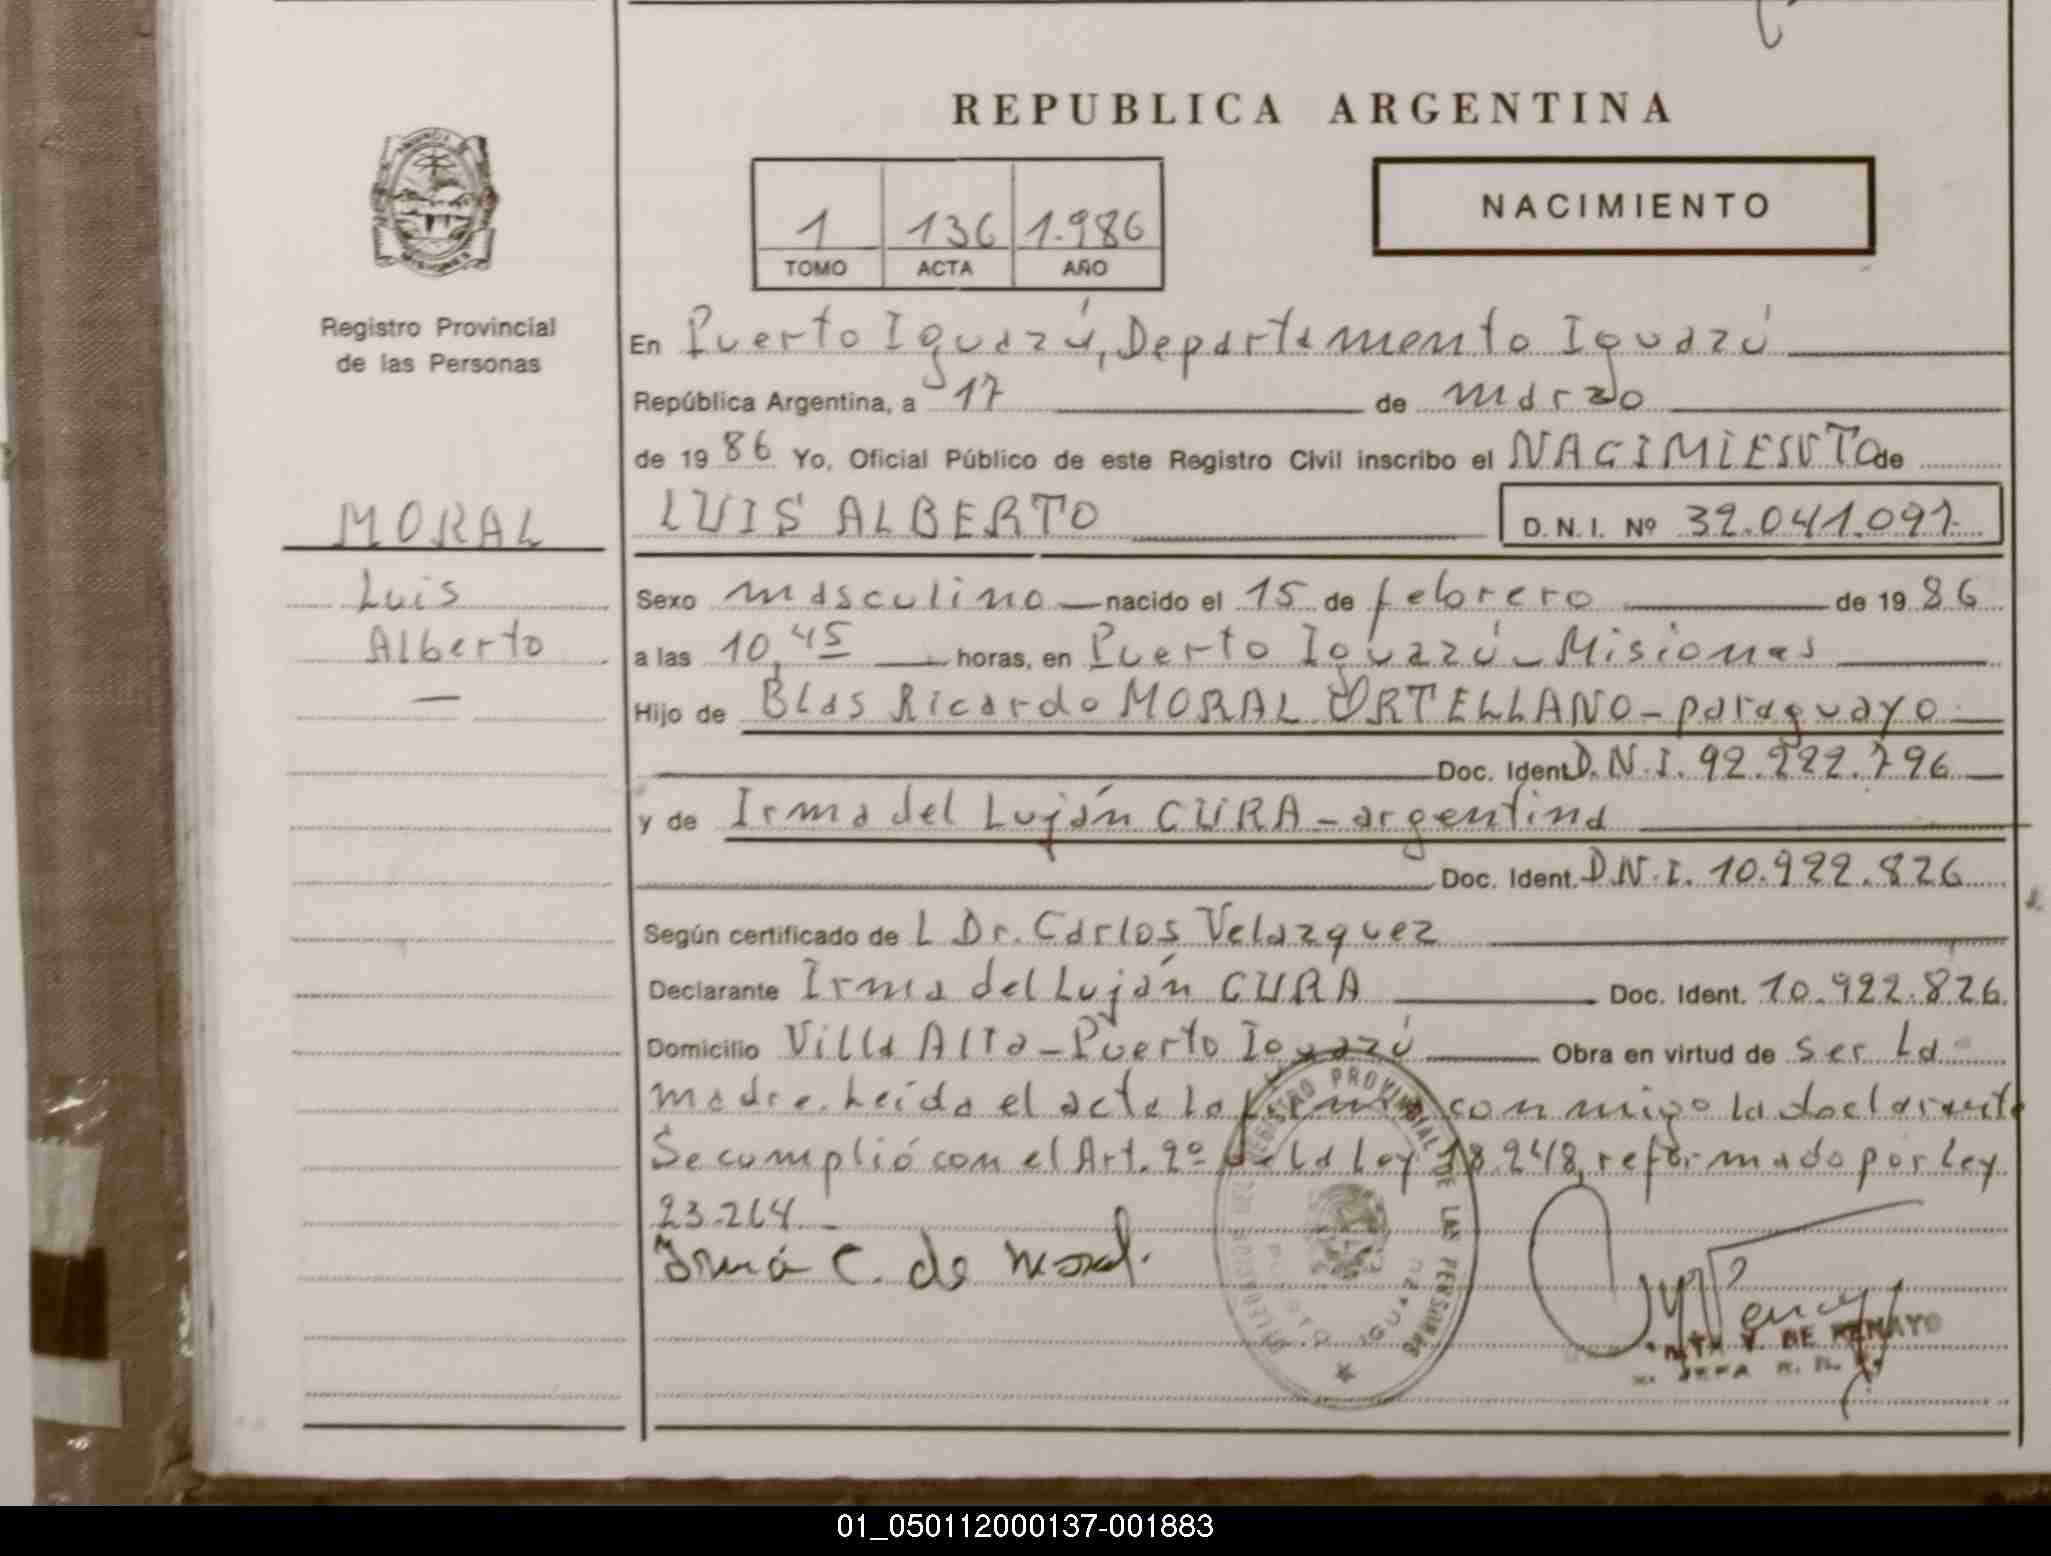 REPUBLICA ARGENTINA
1 136 1.986
TOMO ACTA AÑO
NACIMIENTO
Registro Provincial
de las Personas
MORAL
Luis
Alberto
—
En Puerto Iguazú, Departamento Iguazú
República Argentina, a 17 de marzo
de 19 86 Yo, Oficial Público de este Registro Civil inscribo el NACIMIENTO de
LUIS ALBERTO D. N. I. Nº 32.041.091.
Sexo masculino nacido el 15 de febrero de 19 86
a las 10,45 horas, en Puerto Iguazú - Misiones
Hijo de Blas Ricardo MORAL ORTELLANO - paraguayo
Doc. Ident. D.N.I. 92.222.796
y de Irma del Luján CURA - argentina
Doc. Ident. D.N.I. 10.922.826
Según certificado de L Dr. Carlos Velazquez
Declarante Irma del Luján CURA Doc. Ident. 10.922.826
Domicilio Villa Alta - Puerto Iguazú Obra en virtud de ser la
madre. Leída el acta la firma conmigo la declarante
Se cumplió con el Art. 2º de la Ley 18.248, reformado por Ley
23.264. -
Irma C. de Moral.
REGISTRO PROVINCIAL DE LAS PERSONAS
PUERTO IGUAZU
V. DE PENAYO
JEFA R.
01_050112000137-001883